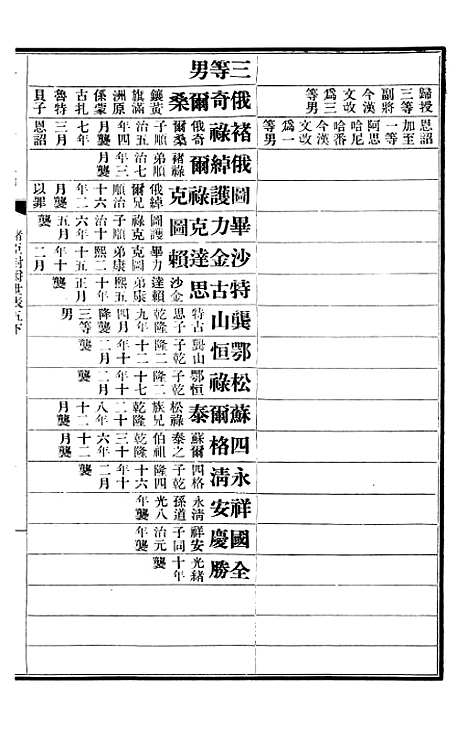 歸授三等副將今漢文改爲三等男
恩詔加至一等阿思哈尼哈番今漢文改爲一等男
三等男
俄奇爾桑
鑲黃旗滿洲原係蒙古扎魯特貝子
褚祿
俄奇爾桑子順治五年四月襲七年三月恩詔
俄綽爾
褚祿弟順治七年三月襲
圖護祿克
俄綽爾兄順治十六年二月襲以罪
畢力克圖
圖護祿克子順治十六年五月襲
沙金達賴
畢力克圖弟康熙二十五年十二月
特古思
沙金達賴弟康熙五十年正月襲
龔山
特古思子乾隆九年四月降襲三等男
鄂恒
龔山子乾隆二十二年二月襲
松祿
鄂恒子乾隆二十七年十二月襲
蘇爾泰
松祿族兄乾隆二十八年十二月襲
四格
蘇爾泰之伯祖乾隆三十六年十二月襲
永清
四格子乾隆四十六年十二月襲
祥安
永清孫道光八年襲
國慶
祥安子同治元年襲
全勝
光緒十年襲
諸臣封爵世表五下